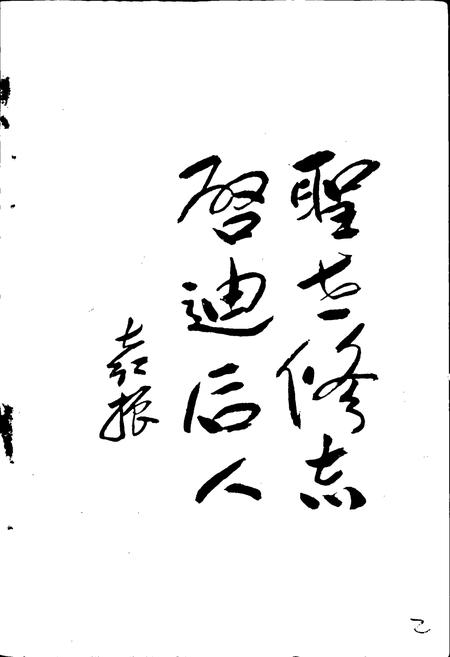 聖世修志
啓迪后人
振